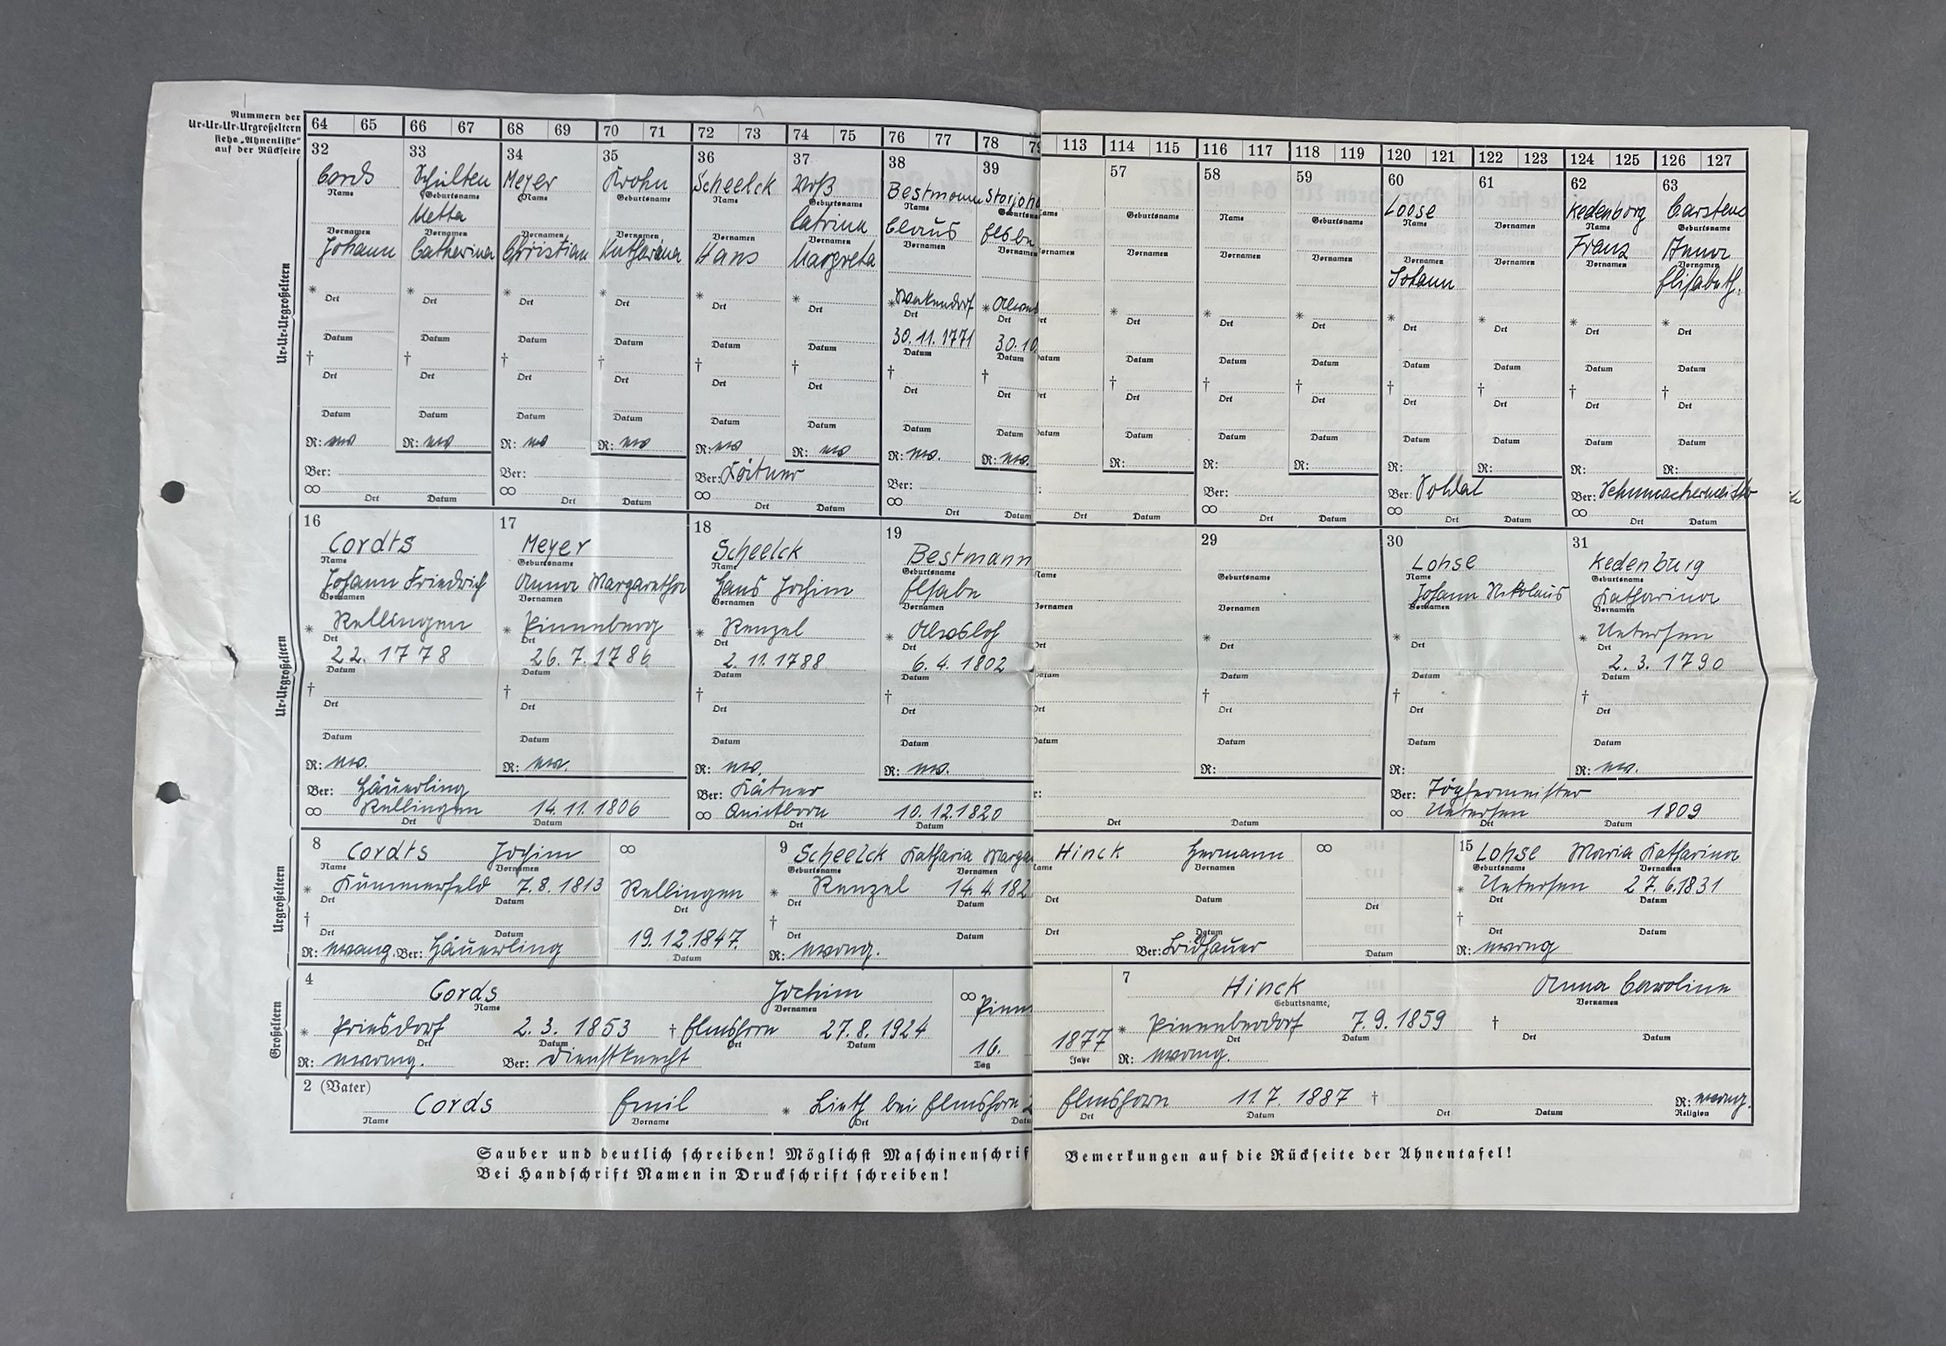 Nummern der
Ur-Ur-Ur-Urgroßeltern
siehe „Ahnenliste"
auf der Rückseite
64 65 66 67 68 69 70 71 72 73 74 75 76 77 78 79 113 114 115 116 117 118 119 120 121 122 123 124 125 126 127
Ur-Ur-Urgroßeltern
32
Cords
Name
Vornamen
Johann
* Ort
Datum
† Ort
Datum
R:
Ber:
∞ Ort Datum
33
Schülten
Geburtsname
Metta
Vornamen
Catherina
* Ort
Datum
† Ort
Datum
R:
34
Meyer
Name
Vornamen
Christian
* Ort
Datum
† Ort
Datum
R:
Ber:
∞ Ort Datum
35
Krohn
Geburtsname
Vornamen
Katharina
* Ort
Datum
† Ort
Datum
R:
36
Scheelck
Name
Vornamen
Hans
* Ort
Datum
† Ort
Datum
R:
Ber:
∞ Ort Datum
37
Geburtsname
Catrina
Vornamen
Margreta
* Ort
Datum
† Ort
Datum
R:
38
Bestmann
Name
Claus
Vornamen
*
Ort
30.11.1771
Datum
† Ort
Datum
R:
Ber:
∞ Ort Datum
39
Storjoh
Geburtsna
Elsbe
Vornamen
*
Ort
30.10
Datum
† Ort
Datum
R:
57
Geburtsname
Vornamen
* Ort
Datum
† Ort
Datum
R:
Ort Datum
58
Name
Vornamen
* Ort
Datum
† Ort
Datum
R:
Ber:
∞ Ort Datum
59
Geburtsname
Vornamen
* Ort
Datum
† Ort
Datum
R:
60
Loose
Name
Vornamen
Johann
* Ort
Datum
† Ort
Datum
R:
Ber: Soldat
∞ Ort Datum
61
Vornamen
Vornamen
* Ort
Datum
† Ort
Datum
R:
62
Kedenborg
Name
Franz
Vornamen
* Ort
Datum
† Ort
Datum
R:
Ber:
∞ Ort Datum
63
Carstens
Geburtsname
Anna
Vornamen
Elisabeth.
* Ort
Datum
† Ort
Datum
R:
Ur-Urgroßeltern
16
Cordts
Name
Johann Friedrich
Vornamen
* Rellingen
Ort
22. 1778
Datum
† Ort
Datum
R:
Ber: Häuerling
∞ Rellingen 14.11.1806
Ort Datum
17
Meyer
Geburtsname
Anna Margaretha
Vornamen
* Pinneberg
Ort
26.7.1786
Datum
† Ort
Datum
R:
18
Scheelck
Name
Hans Jochim
Vornamen
* Renzel
Ort
2.11.1788
Datum
† Ort
Datum
R:
Ber: Kätner
∞ Quickborn 10.12.1820
Ort Datum
19
Bestmann
Geburtsname
Elsabe
Vornamen
*
Ort
6.4.1802
Datum
† Ort
Datum
R:
Ort Datum
29
Geburtsname
Vornamen
* Ort
Datum
† Ort
Datum
R:
30
Lohse
Name
Johann Nikolaus
Vornamen
* Ort
Datum
† Ort
Datum
R:
Ber: Töpfermeister
∞ Uetersen 1809
Ort Datum
31
Kedenburg
Geburtsname
Katharina
Vornamen
* Uetersen
Ort
2.3.1790
Datum
† Ort
Datum
R:
Urgroßeltern
8 Cordts Jochim
Name Vornamen
* Kummerfeld 7.8.1813
Ort Datum
† Ort Datum
R: Ber: Häuerling
∞
Rellingen
Ort
19.12.1847.
Datum
9 Scheelck Katharia Marga
Geburtsname Vornamen
* Renzel 14.4.182
Ort Datum
† Ort Datum
R:
Hinck Hermann
Vornamen
Ort Datum
Ort Datum
Ber:
∞
Ort
Datum
15 Lohse Maria Katharina
Geburtsname Vornamen
* Uetersen 27.6.1831
Ort Datum
† Ort Datum
R:
Großeltern
4
Cords Jochim
Name Vornamen
* Prisdorf 2.3.1853 † Elmshorn 27.8.1924
Ort Datum Ort Datum
R: Ber: Dienstknecht
∞ Pinn
16.
Tag
1877
Jahr
7
Hinck Anna Caroline
Geburtsname, Vornamen
* 7.9.1859 †
Ort Datum Ort Datum
R:
2 (Vater)
Cords Emil * Lieth bei Elmshorn
Name Vorname Ort
Elmshorn 11.7.1887 †
Ort Datum Ort Datum
R:
Religion
Sauber und deutlich schreiben! Möglichst Maschinenschrif
Bei Handschrift Namen in Druckschrift schreiben!
Bemerkungen auf die Rückseite der Ahnentafel!